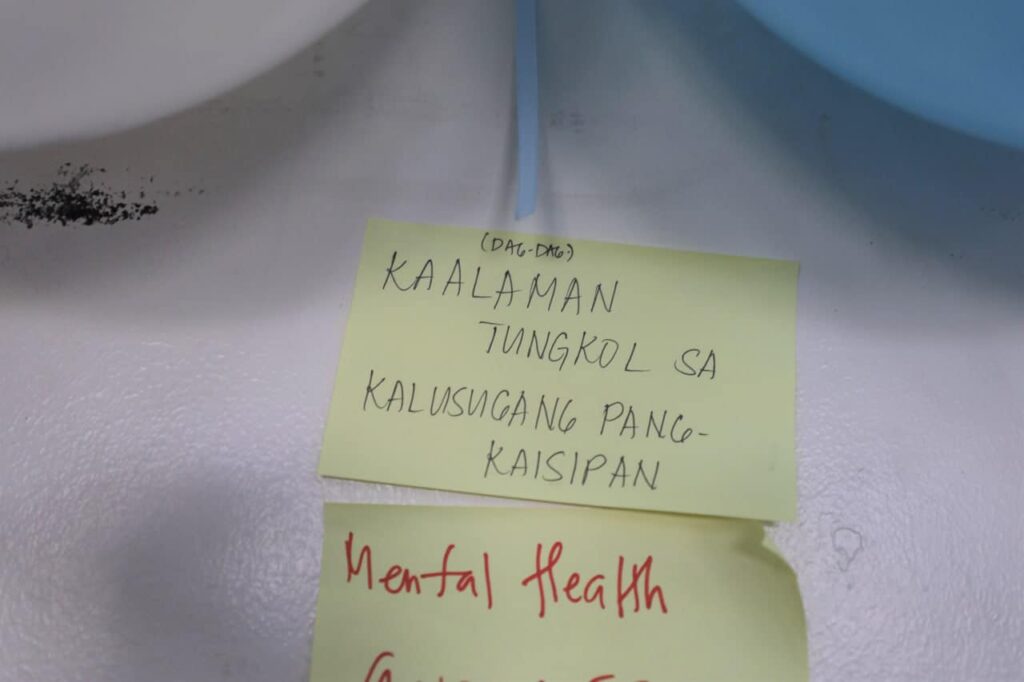 (DAG-DAG)
KAALAMAN
TUNGKOL SA
KALUSUGANG PANG-
KAISIPAN
Mental Health